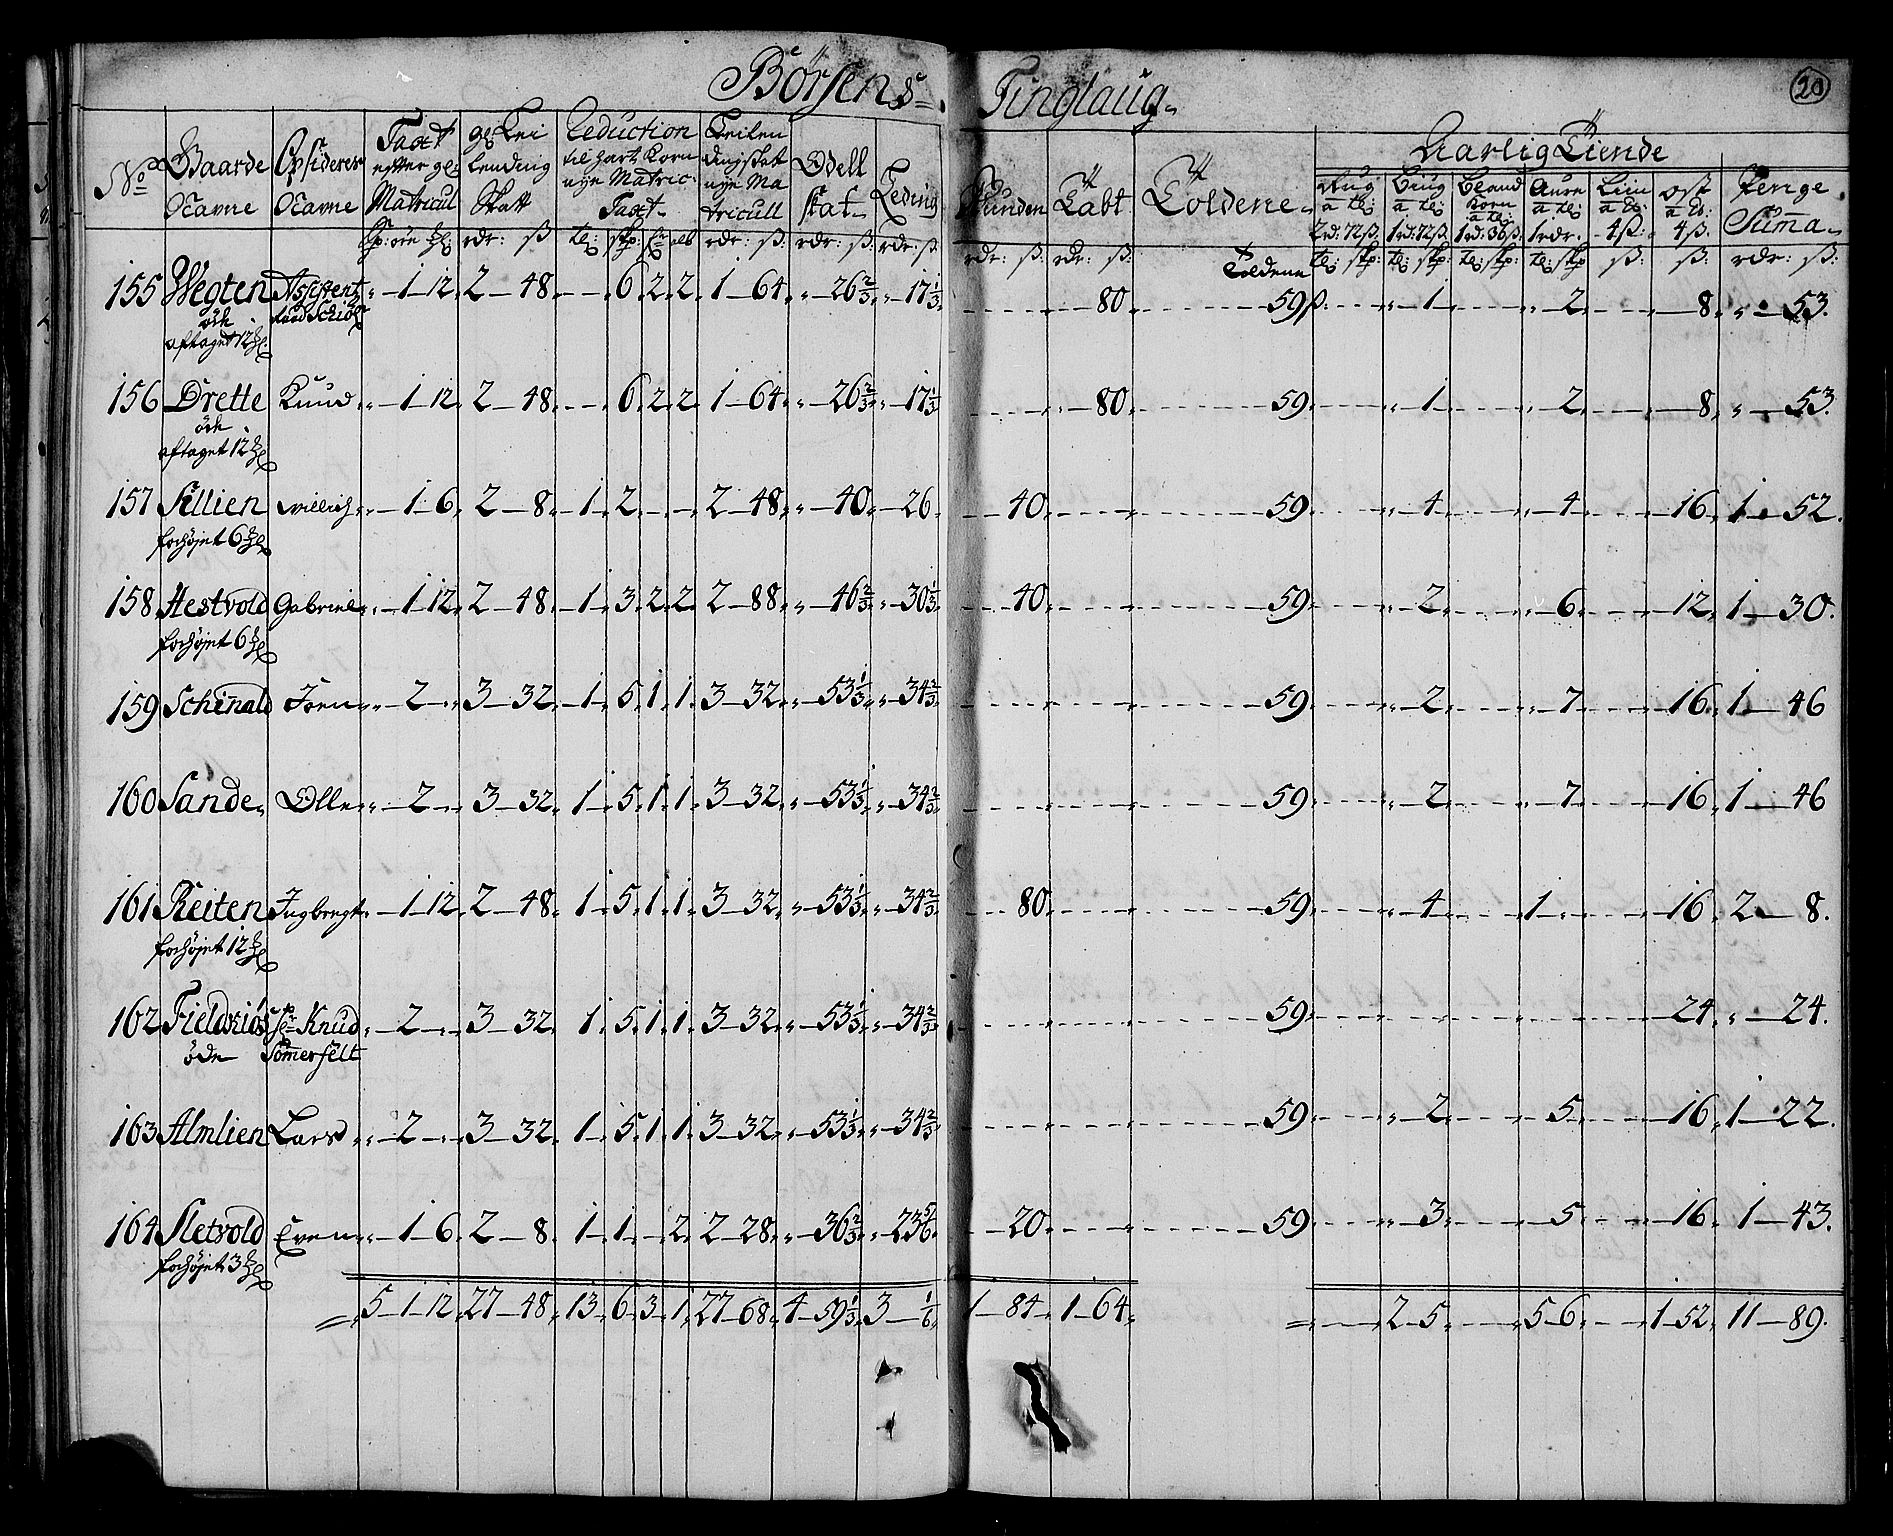 Börsens Tinglaug
20
No Gaarde Navne Opsiderer Navne Taxt efter gl: Matricul gl: Lei lending Skatt Reduction til hart Korn nye Matric: Taxt Leilendingskat nye Matricull Odell skat Leding Tabt Toldene Aarlig Tiende
Rug a tl: 2rd: 72ß. Biug a tl: 1rd: 72ß. Bland Korn a tl: 1rd: 36ß. a tl: 1rdr. 4ß: ost 4ß. Penge Suma
155 Wegten Assistent 1 12 2 48 6 2 2 1 64 26 2/3 17 1/3 80 59ß 1 2 8 53.
öde
aftaget 12
156 Drette Knud 1 12 2 48 6 2 2 1 64 26 2/3 17 1/3 80 59 1 2 8 53.
öde
aftaget 12
157 Sillien 1 6 2 8 1 2 2 48 40 26 40 59 4 4 16 1 52.
forhöjet 6
158 Hestvold Gabriel 1 12 2 48 1 3 2 2 2 88 46 2/3 30 1/3 40 59 2 6 12 1 30.
forhöjet 6
159 Schenald Joen 2 3 32 1 5 1 1 3 32 53 1/3 34 2/3 59 2 7 16 1 46
160 Sande Olle 2 3 32 1 5 1 1 3 32 53 1/3 34 2/3 59 2 7 16 1 46
161 Reiten Ingbregt 1 12 2 48 1 5 1 1 3 32 53 1/3 34 2/3 80 59 4 1 16 2 8.
forhöjet 12
162 Knud 2 3 32 1 5 1 1 3 32 53 1/3 34 2/3 59 24 24.
öde Somerfelt
163 Almlien Lars 2 3 32 1 5 1 1 3 32 53 1/3 34 2/3 59 2 5 16 1 22.
164 Sletvold Even 1 6 2 8 1 1 2 2 28 36 2/3 23 5/6 20 59 3 5 16 1 43.
forhöjet 3
5 1 12 27 48 13 6 3 1 27 68 4 59 1/3 3 1/6 1 84 1 64 2 5 5 6 1 52 11 89.